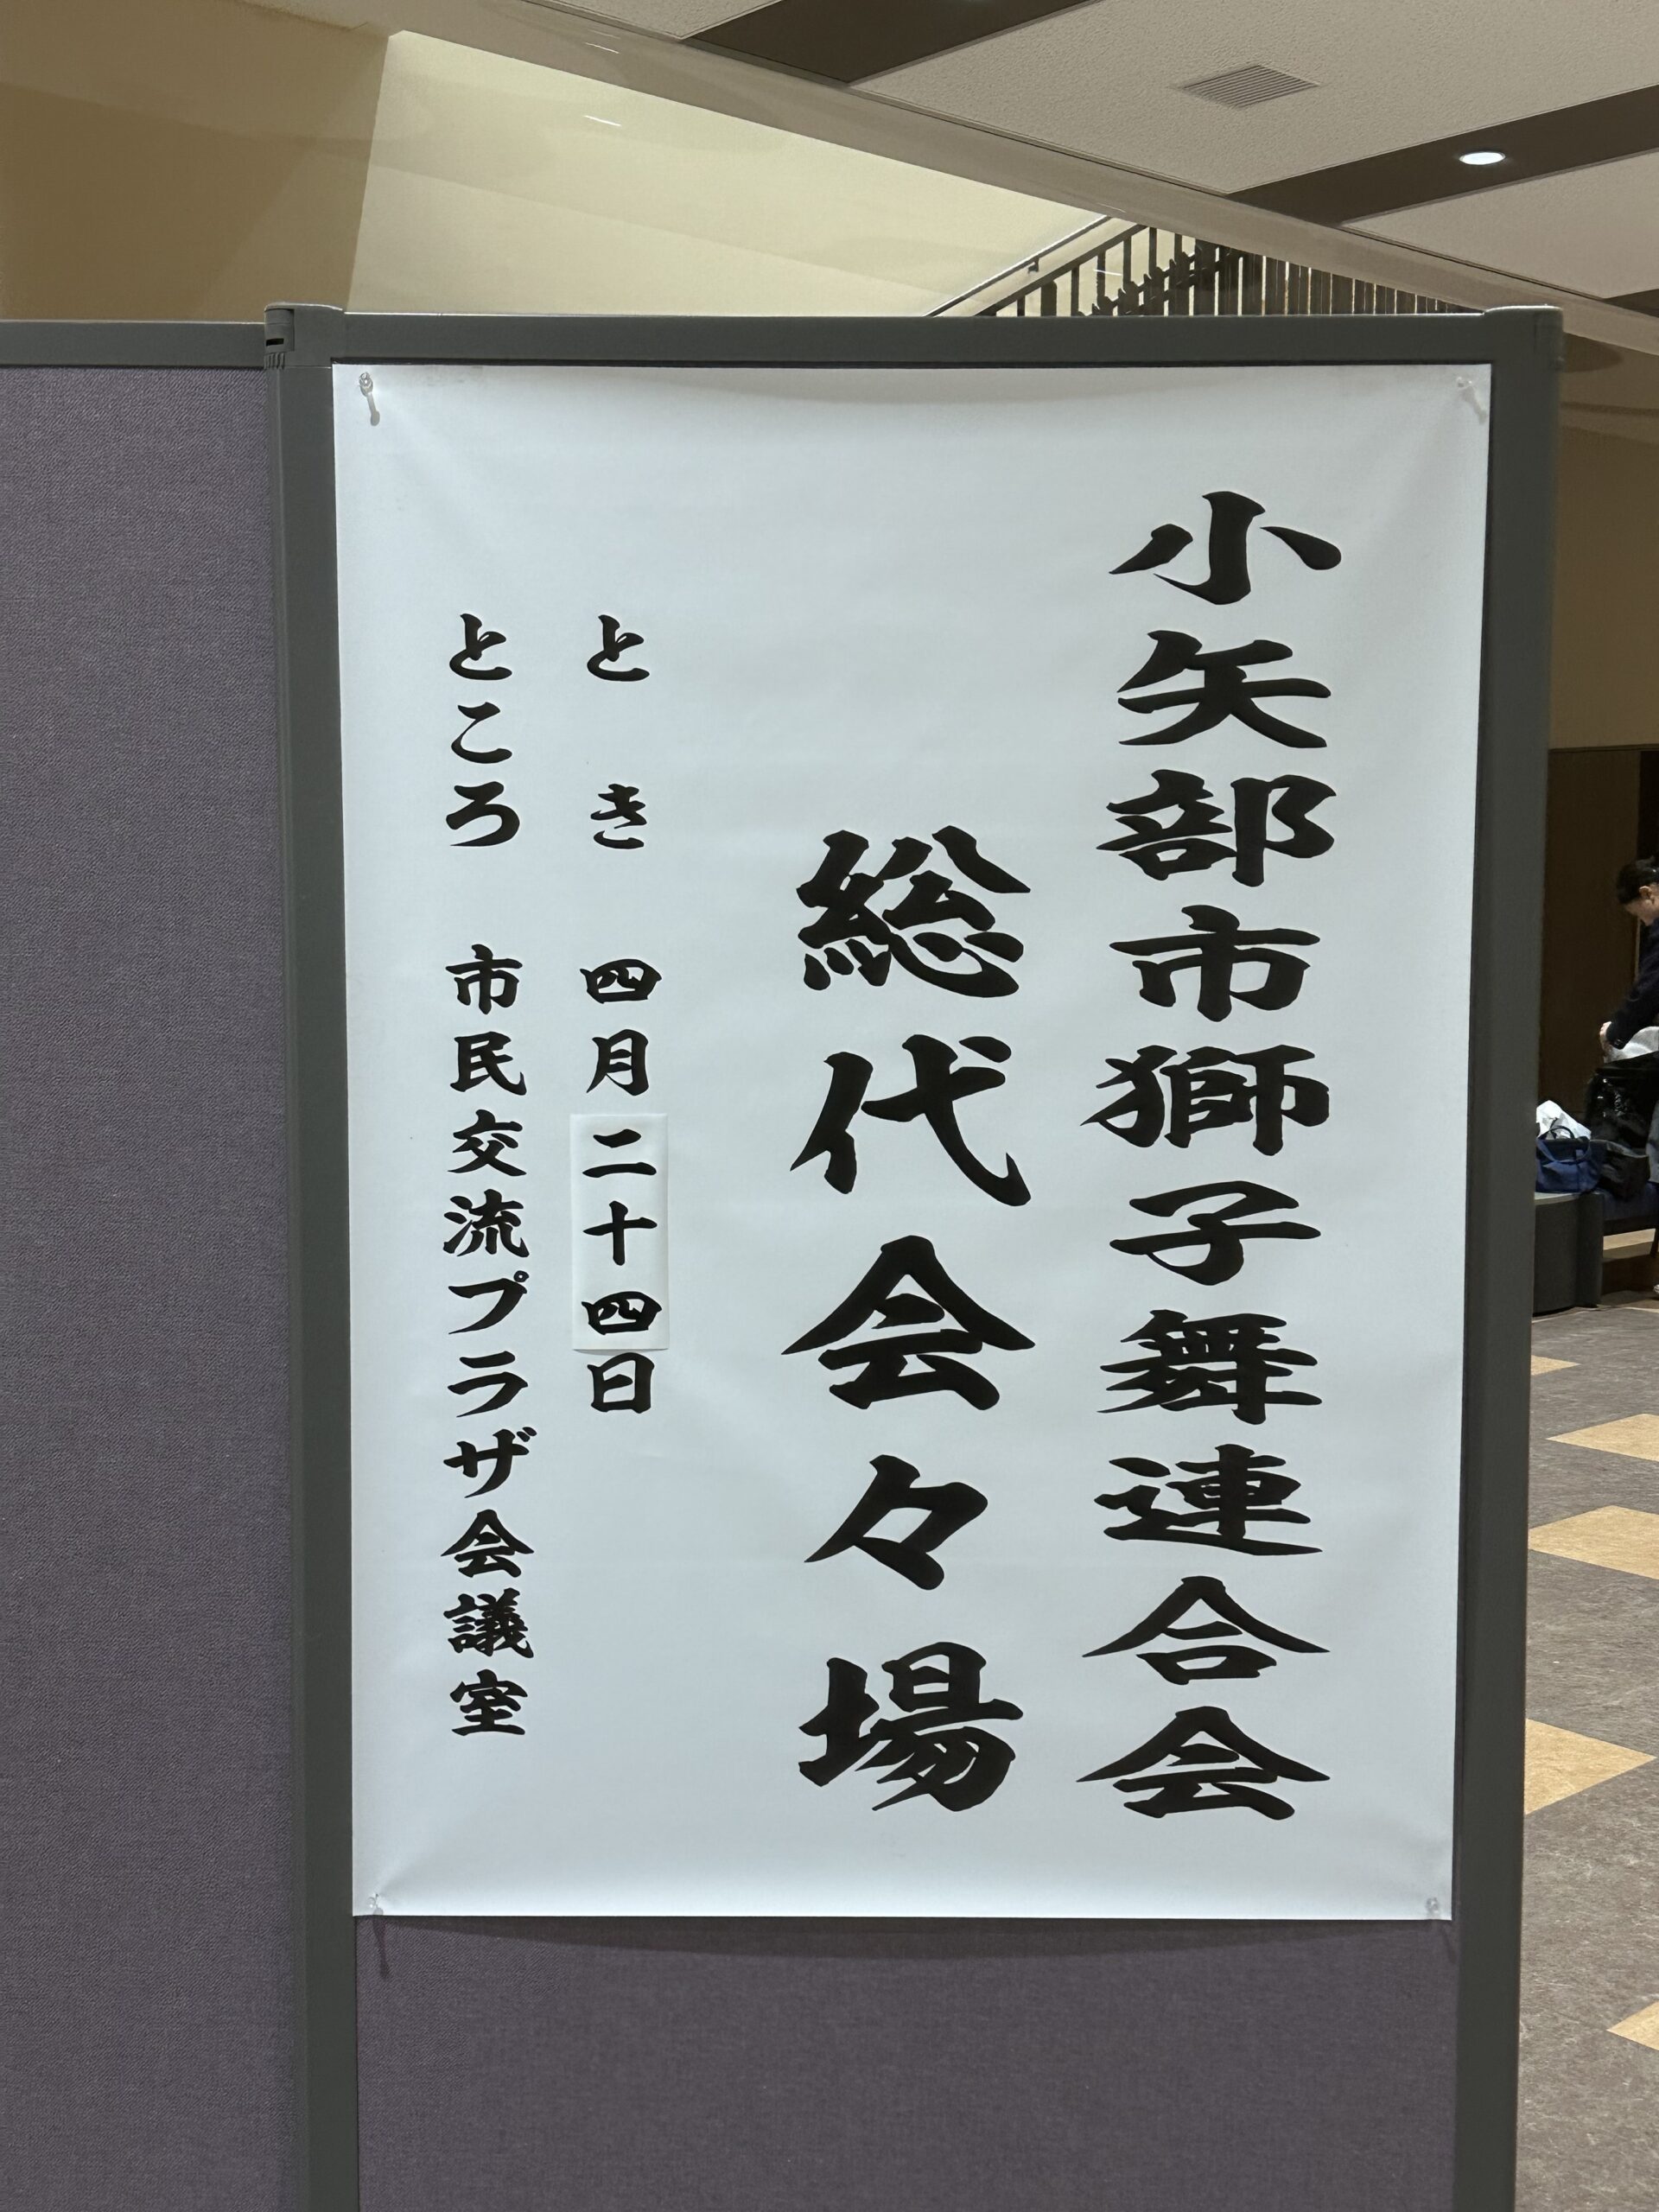 小矢部市獅子舞連合会
総代会々場
とき 四月二十四日
ところ 市民交流プラザ会議室